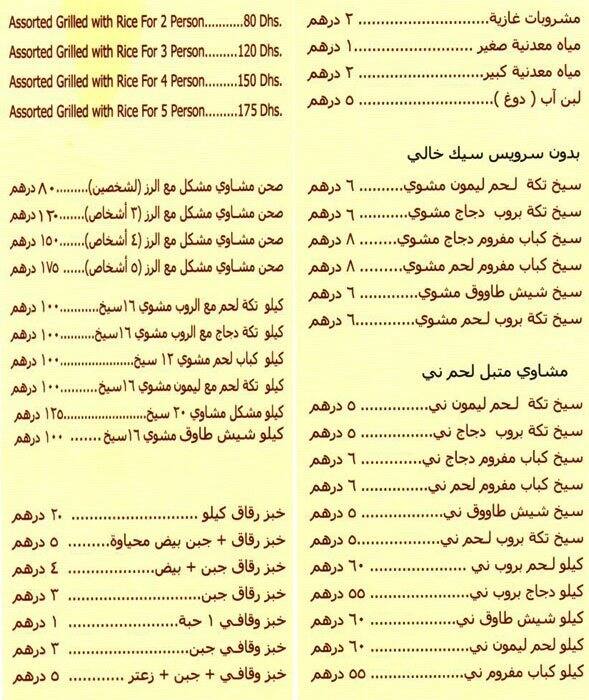 مشروبات غازية............................ ٢ درهم
مياه معدنية صغير ........................١ درهم
مياه معدنية كبير......................... ٢ درهم
لبن آب ( دوغ )............................ ٥ درهم
بدون سرويس سيك خالي
سيخ تكة لحم ليمون مشوي.......... ٦ درهم
سيخ تكة بروب دجاج مشوي.......... ٦ درهم
سيخ كباب مفروم دجاج مشوي........ ٨ درهم
سيخ كباب مفروم لحم مشوي......... ٨ درهم
سيخ شيش طاووق مشوي............. ٦ درهم
سيخ تكة بروب لحم مشوي.............٦ درهم
مشاوي متبل لحم ني
سيخ تكة لحم ليمون ني............... ٥ درهم
سيخ تكة بروب دجاج ني................ ٥ درهم
سيخ كباب مفروم دجاج ني............. ٦ درهم
سيخ كباب مفروم لحم ني.............. ٦ درهم
سيخ شيش طاووق ني.................. ٥ درهم
سيخ تكة بروب لحم ني..................٥ درهم
كيلو لحم بروب ني ..................... ٦٠ درهم
كيلو دجاج بروب ني..................... ٥٥ درهم
كيلو شيش طاوق ني................... ٦٠ درهم
كيلو لحم ليمون ني.................... ٦٠ درهم
كيلو كباب مفروم ني................... ٥٥ درهم
Assorted Grilled with Rice For 2 Person.........80 Dhs.
Assorted Grilled with Rice For 3 Person.........120 Dhs.
Assorted Grilled with Rice For 4 Person.........150 Dhs.
Assorted Grilled with Rice For 5 Person.........175 Dhs.
صحن مشاوي مشكل مع الرز (لشخصين).........٨٠ درهم
صحن مشاوي مشكل مع الرز (٣ أشخاص)......١٣٠ درهم
صحن مشاوي مشكل مع الرز (٤ أشخاص)...... ١٥٠ درهم
صحن مشاوي مشكل مع الرز (٥ أشخاص)...... ١٧٥ درهم
كيلو تكة لحم مع الروب مشوي ١٦سيخ...........١٠٠ درهم
كيلو تكة دجاج مع الروب مشوي ١٦سيخ..........١٠٠ درهم
كيلو كباب لحم مشوي ١٢ سيخ....................١٠٠ درهم
كيلو تكة لحم مع ليمون مشوي ١٦سيخ..........١٠٠ درهم
كيلو مشكل مشاوي ٢٠ سيخ.......................١٢٥ درهم
كيلو شيش طاوق مشوي ١٦سيخ....... ١٠٠ درهم
خبز رقاق كيلو ............................ ٢٠ درهم
خبز رقاق + جبن بيض محياوة......... ٥ درهم
خبز رقاق جبن + بيض................... ٤ درهم
خبز رقاق جبن............................ ٣ درهم
خبز وقافي ١ حبة........................ ١ درهم
خبز وقافي جبن.......................... ٣ درهم
خبز وقافي + جبن + زعتر ............ ٥ درهم